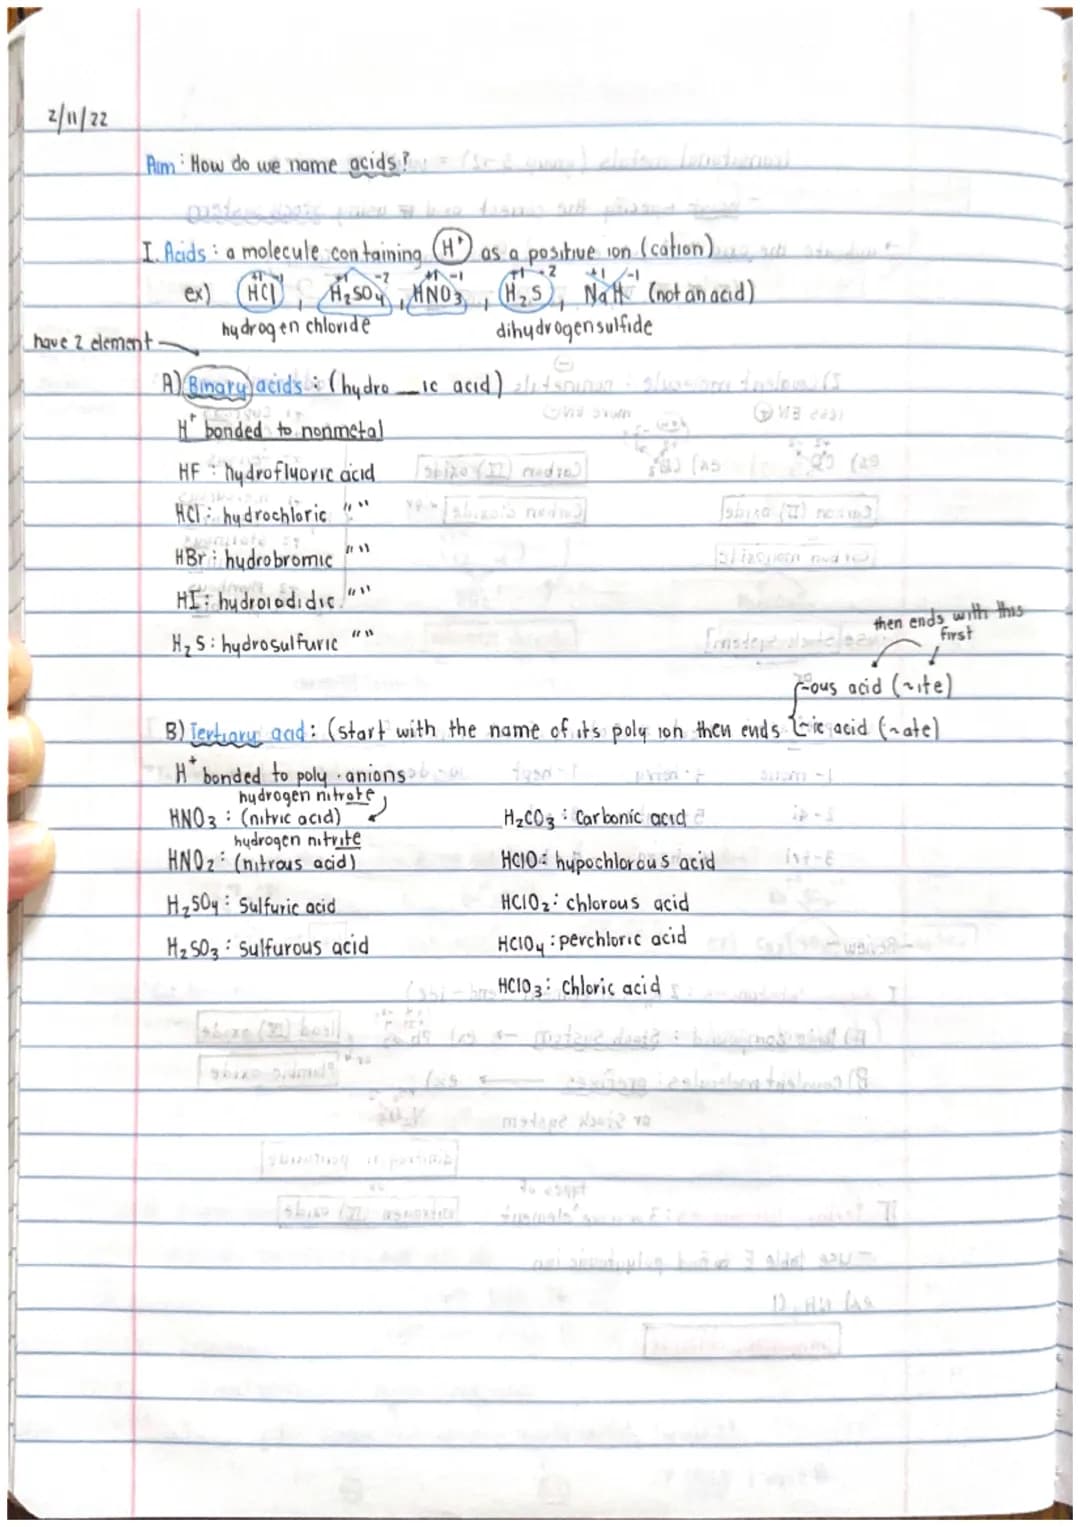 2/11/22
Aim: How do we name acids?
I. Acids: a molecule containing H⁺ as a positive ion (cation)
+1 -1 +1 -2 +1 -1 +1 -2 +1 -1
ex) HCl, H₂SO₄, HNO₃, H₂S, NaH (not an acid)
hydrogen chloride dihydrogen sulfide
have 2 element
A) Binary acids: (hydro __ic acid)
H⁺ bonded to nonmetal
HF: hydrofluoric acid
HCl: hydrochloric ""
HBr: hydrobromic ""
HI: hydroiodidic ""
H₂S: hydrosulfuric ""
then ends with this
first
-ous acid (~ite)
B) Tertiary acid: (start with the name of its poly ion then ends -ic acid (~ate)
H⁺ bonded to poly. anions
hydrogen nitrate
HNO₃: (nitric acid)
hydrogen nitrite
HNO₂: (nitrous acid)
H₂SO₄: Sulfuric acid
H₂SO₃: sulfurous acid
H₂CO₃: Carbonic acid
HClO: hypochlorous acid
HClO₂: chlorous acid
HClO₄: perchloric acid
HClO₃: chloric acid